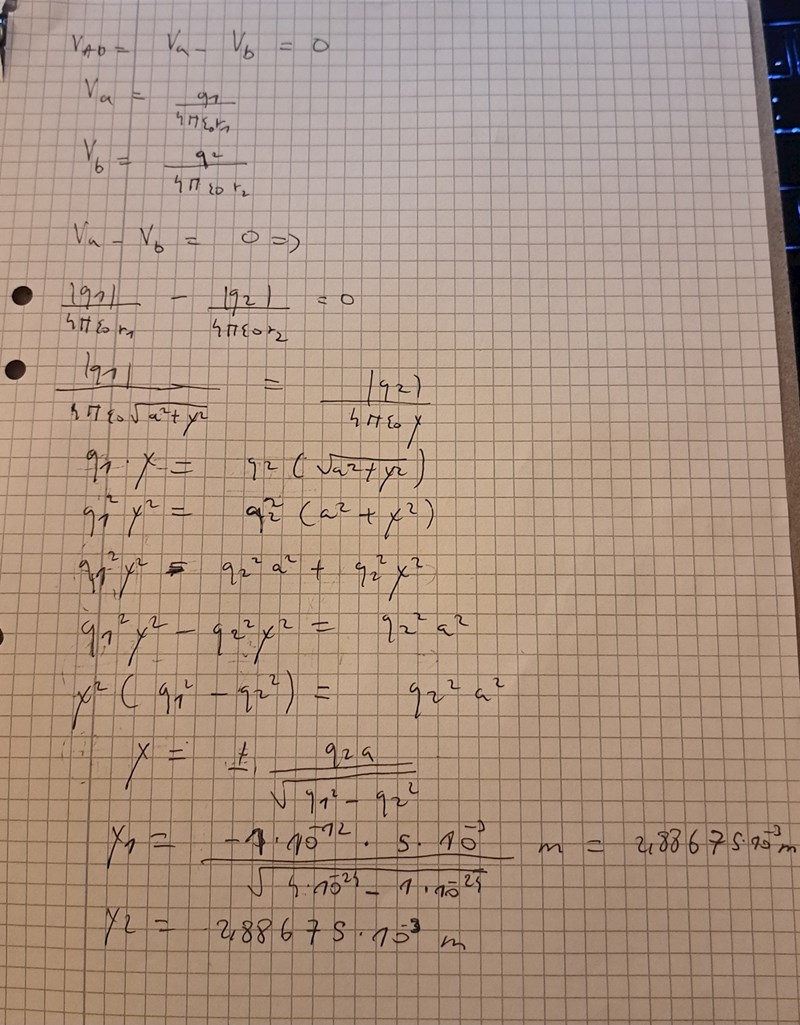 V_Ab = V_a - V_b = 0
V_a = q1 / 4πε0r1
V_b = q2 / 4πε0r2
V_a - V_b = 0 =>
|q1| / 4πε0r1 - |q2| / 4πε0r2 = 0
|q1| / 4πε0√(a²+y²) = |q2| / 4πε0y
q1 · y = q2 (√(a²+y²))
q1² y² = q2² (a² + y²)
q1² y² = q2² a² + q2² y²
q1² y² - q2² y² = q2² a²
y² (q1² - q2²) = q2² a²
y = ± q2a / √(q1² - q2²)
y1 = -1·10⁻¹² · 5·10⁻³ / √(4·10⁻²⁴ - 1·10⁻²⁴) m = 2,88675·10⁻³ m
y2 = -2,88675·10⁻³ m